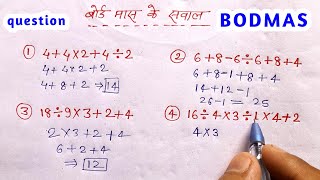 question
बोर्ड मास के सवाल
BODMAS
① 4+4×2+4÷2
4+4×2+2
4+8+2 ⇒ 14
② 6+8-6÷6+8+4
6+8-1+8+4
14+12-1
26-1 = 25
③ 18÷9×3+2+4
2×3+2+4
6+2+4
⇒ 12
④ 16÷4×3÷1×4+2
4×3